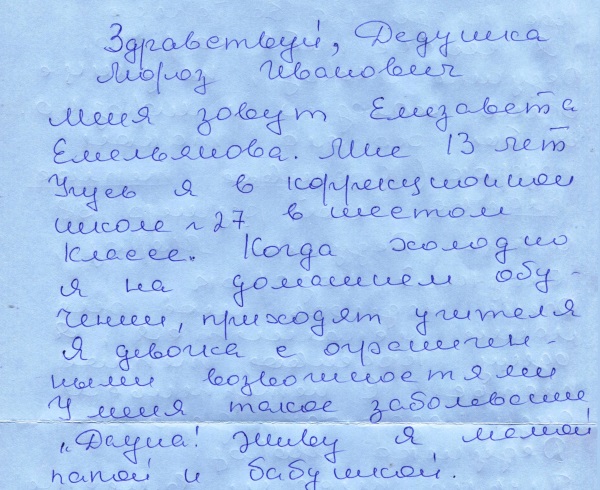 Здравствуй, Дедушка
Мороз Иванович
меня зовут Елизавета
Емельянова. Мне 13 лет
Учусь я в коррекционной
школе №27 в шестом
классе. Когда холодно
я на домашнем обу-
чении, приходят учителя
Я девочка с ограничен-
ными возможностями
У меня такое заболевание
„Дауна! Живу я мамой
папой и бабушкой.